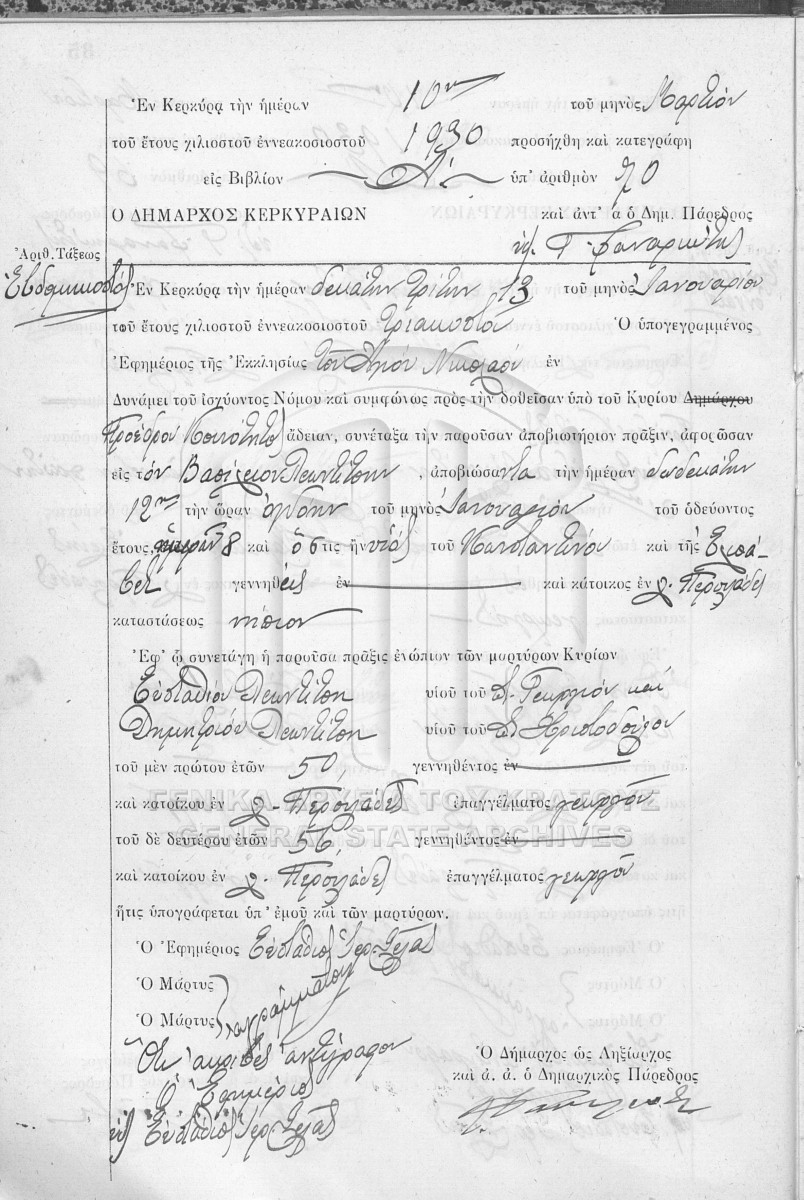 Ἐν Κερκύρᾳ τὴν ἡμέραν 10ην τοῦ μηνὸς Μαρτίου
τοῦ ἔτους χιλιοστοῦ ἐννεακοσιοστοῦ 1930 προσήχθη καὶ κατεγράφη
εἰς Βιβλίον Α΄ ὑπ' ἀριθμὸν 70
Ο ΔΗΜΑΡΧΟΣ ΚΕΡΚΥΡΑΙΩΝ καὶ ἀντ' ἀ ὁ Δημ. Πάρεδρος
Φαναριώτης
Ἀριθ. Τάξεως
Ἑβδομηκοστός
Ἐν Κερκύρᾳ τὴν ἡμέραν δεκάτην τρίτην 13 τοῦ μηνὸς Ἰανουαρίου
τοῦ ἔτους χιλιοστοῦ ἐννεακοσιοστοῦ τριακοστοῦ Ὁ ὑπογεγραμμένος
Ἐφημέριος τῆς Ἐκκλησίας τοῦ Ἁγίου Νικολάου ἐν
Δυνάμει τοῦ ἰσχύοντος Νόμου καὶ συμφώνως πρὸς τὴν δοθεῖσαν ὑπὸ τοῦ Κυρίου Δημάρχου
Προέδρου Κοινότητος ἄδειαν, συνέταξα τὴν παροῦσαν ἀποβιωτήριον πρᾶξιν, ἀφορῶσαν
εἰς τὸν Βασίλειον Λεωντίτην, ἀποβιώσαντα τὴν ἡμέραν δωδεκάτην
12ην τὴν ὥραν ὀγδόην τοῦ μηνὸς Ἰανουαρίου τοῦ ὁδεύοντος
ἔτους, ἡμερῶν 8 καὶ ὅστις ἦν υἱὸς τοῦ Κωνσταντίνου καὶ τῆς Ἐλισά-
βετ γεννηθεὶς ἐν καὶ κάτοικος ἐν χ. Περουλάδες
καταστάσεως νήπιον
Ἐφ' ᾧ συνετάγη ἡ παροῦσα πρᾶξις ἐνώπιον τῶν μαρτύρων Κυρίων
Εὐσταθίου Λεωντίτη υἱοῦ τοῦ Γεωργίου καὶ
Δημητρίου Λεωντίτη υἱοῦ τοῦ Χριστοδούλου
τοῦ μὲν πρώτου ἐτῶν 50, γεννηθέντος ἐν
καὶ κατοίκου ἐν χ. Περουλάδες ἐπαγγέλματος γεωργοῦ
ΓΕΝΙΚΑ ΑΡΧΕΙΑ ΤΟΥ ΚΡΑΤΟΥΣ
GENERAL STATE ARCHIVES
τοῦ δὲ δευτέρου ἐτῶν 56, γεννηθέντος ἐν
καὶ κατοίκου ἐν χ. Περουλάδες ἐπαγγέλματος γεωργοῦ
ἥτις ὑπογράφεται ὑπ' ἐμοῦ καὶ τῶν μαρτύρων.
Ὁ Ἐφημέριος Εὐστάθιος Ἱερ.
Ὁ Μάρτυς
ἀγράμματοι
Ὁ Μάρτυς
Ὅτι ἀκριβὲς ἀντίγραφον
Ὁ Ἐφημέριος
Εὐστάθιος Ἱερ.
Ὁ Δήμαρχος ὡς Ληξίαρχος
καὶ ἀ. ἀ. ὁ Δημαρχικὸς Πάρεδρος